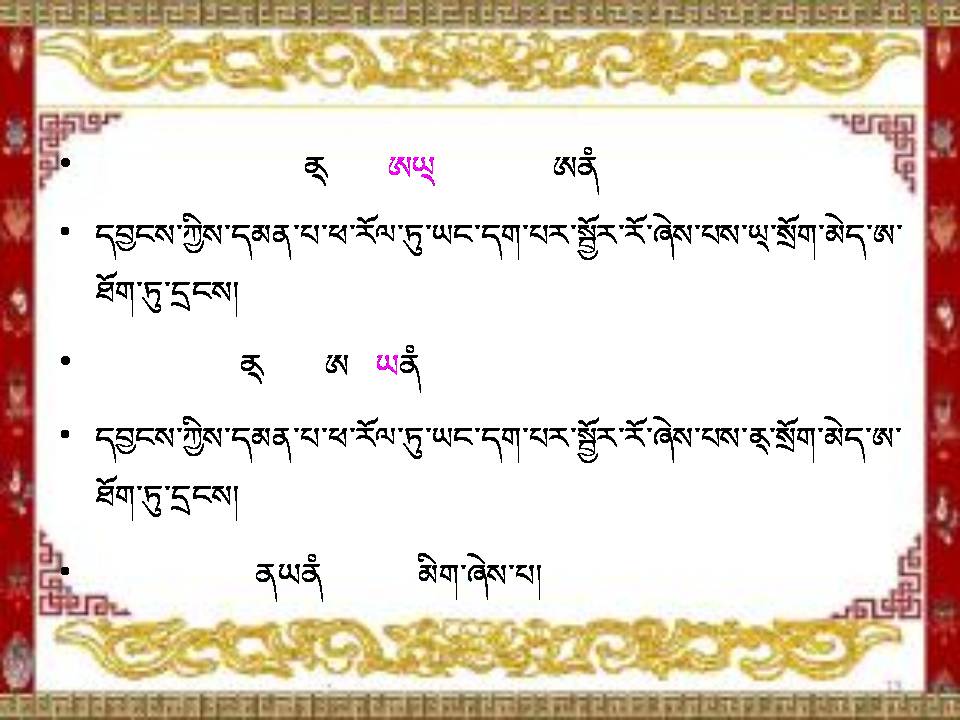 • ན྄ ཨཡ྄ ཨནཾ
• དབྱངས་ཀྱིས་དམན་པ་ཕ་རོལ་ཏུ་ཡང་དག་པར་སྦྱོར་རོ་ཞེས་པས་ཡ྄་སྲོག་མེད་ཨ་
ཐོག་ཏུ་དྲངས།
• ན྄ ཨ ཡནཾ
• དབྱངས་ཀྱིས་དམན་པ་ཕ་རོལ་ཏུ་ཡང་དག་པར་སྦྱོར་རོ་ཞེས་པས་ན྄་སྲོག་མེད་ཨ་
ཐོག་ཏུ་དྲངས།
• ནཡནཾ མིག་ཞེས་པ།